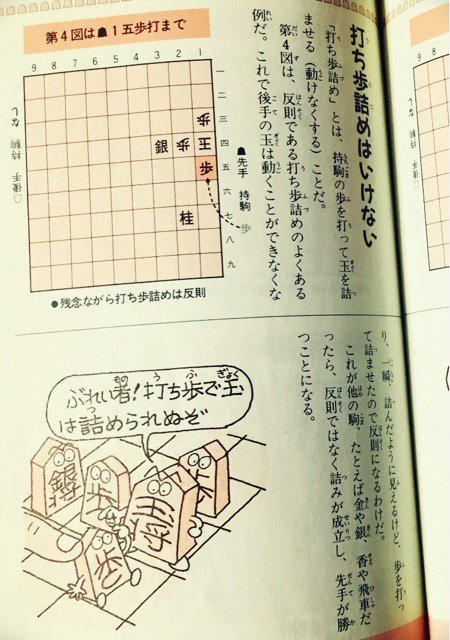 打ち歩詰めはいけない
「打ち歩詰め」とは、持駒の歩を打って玉を詰
ませる（動けなくする）ことだ。
第4図は、反則である打ち歩詰めのよくある
例だ。これで後手の玉は動くことができなくな
第4図は☗1五歩打まで
9 8 7 6 5 4 3 2 1
一
二
三
四
五
六
七
八
九
歩
銀 歩 王
歩
桂
☗先手 持駒 歩
☖後手 持駒 なし
●残念ながら打ち歩詰めは反則
り、一瞬、詰んだように見えるけど、歩を打っ
て詰ませたので反則になるわけだ。
これが他の駒、たとえば金や銀、香や飛車だ
ったら、反則ではなく詰みが成立し、先手が勝
つことになる。
ぶれい者！打ち歩で玉
は詰められぬぞ
銀将
歩
玉将
歩
歩